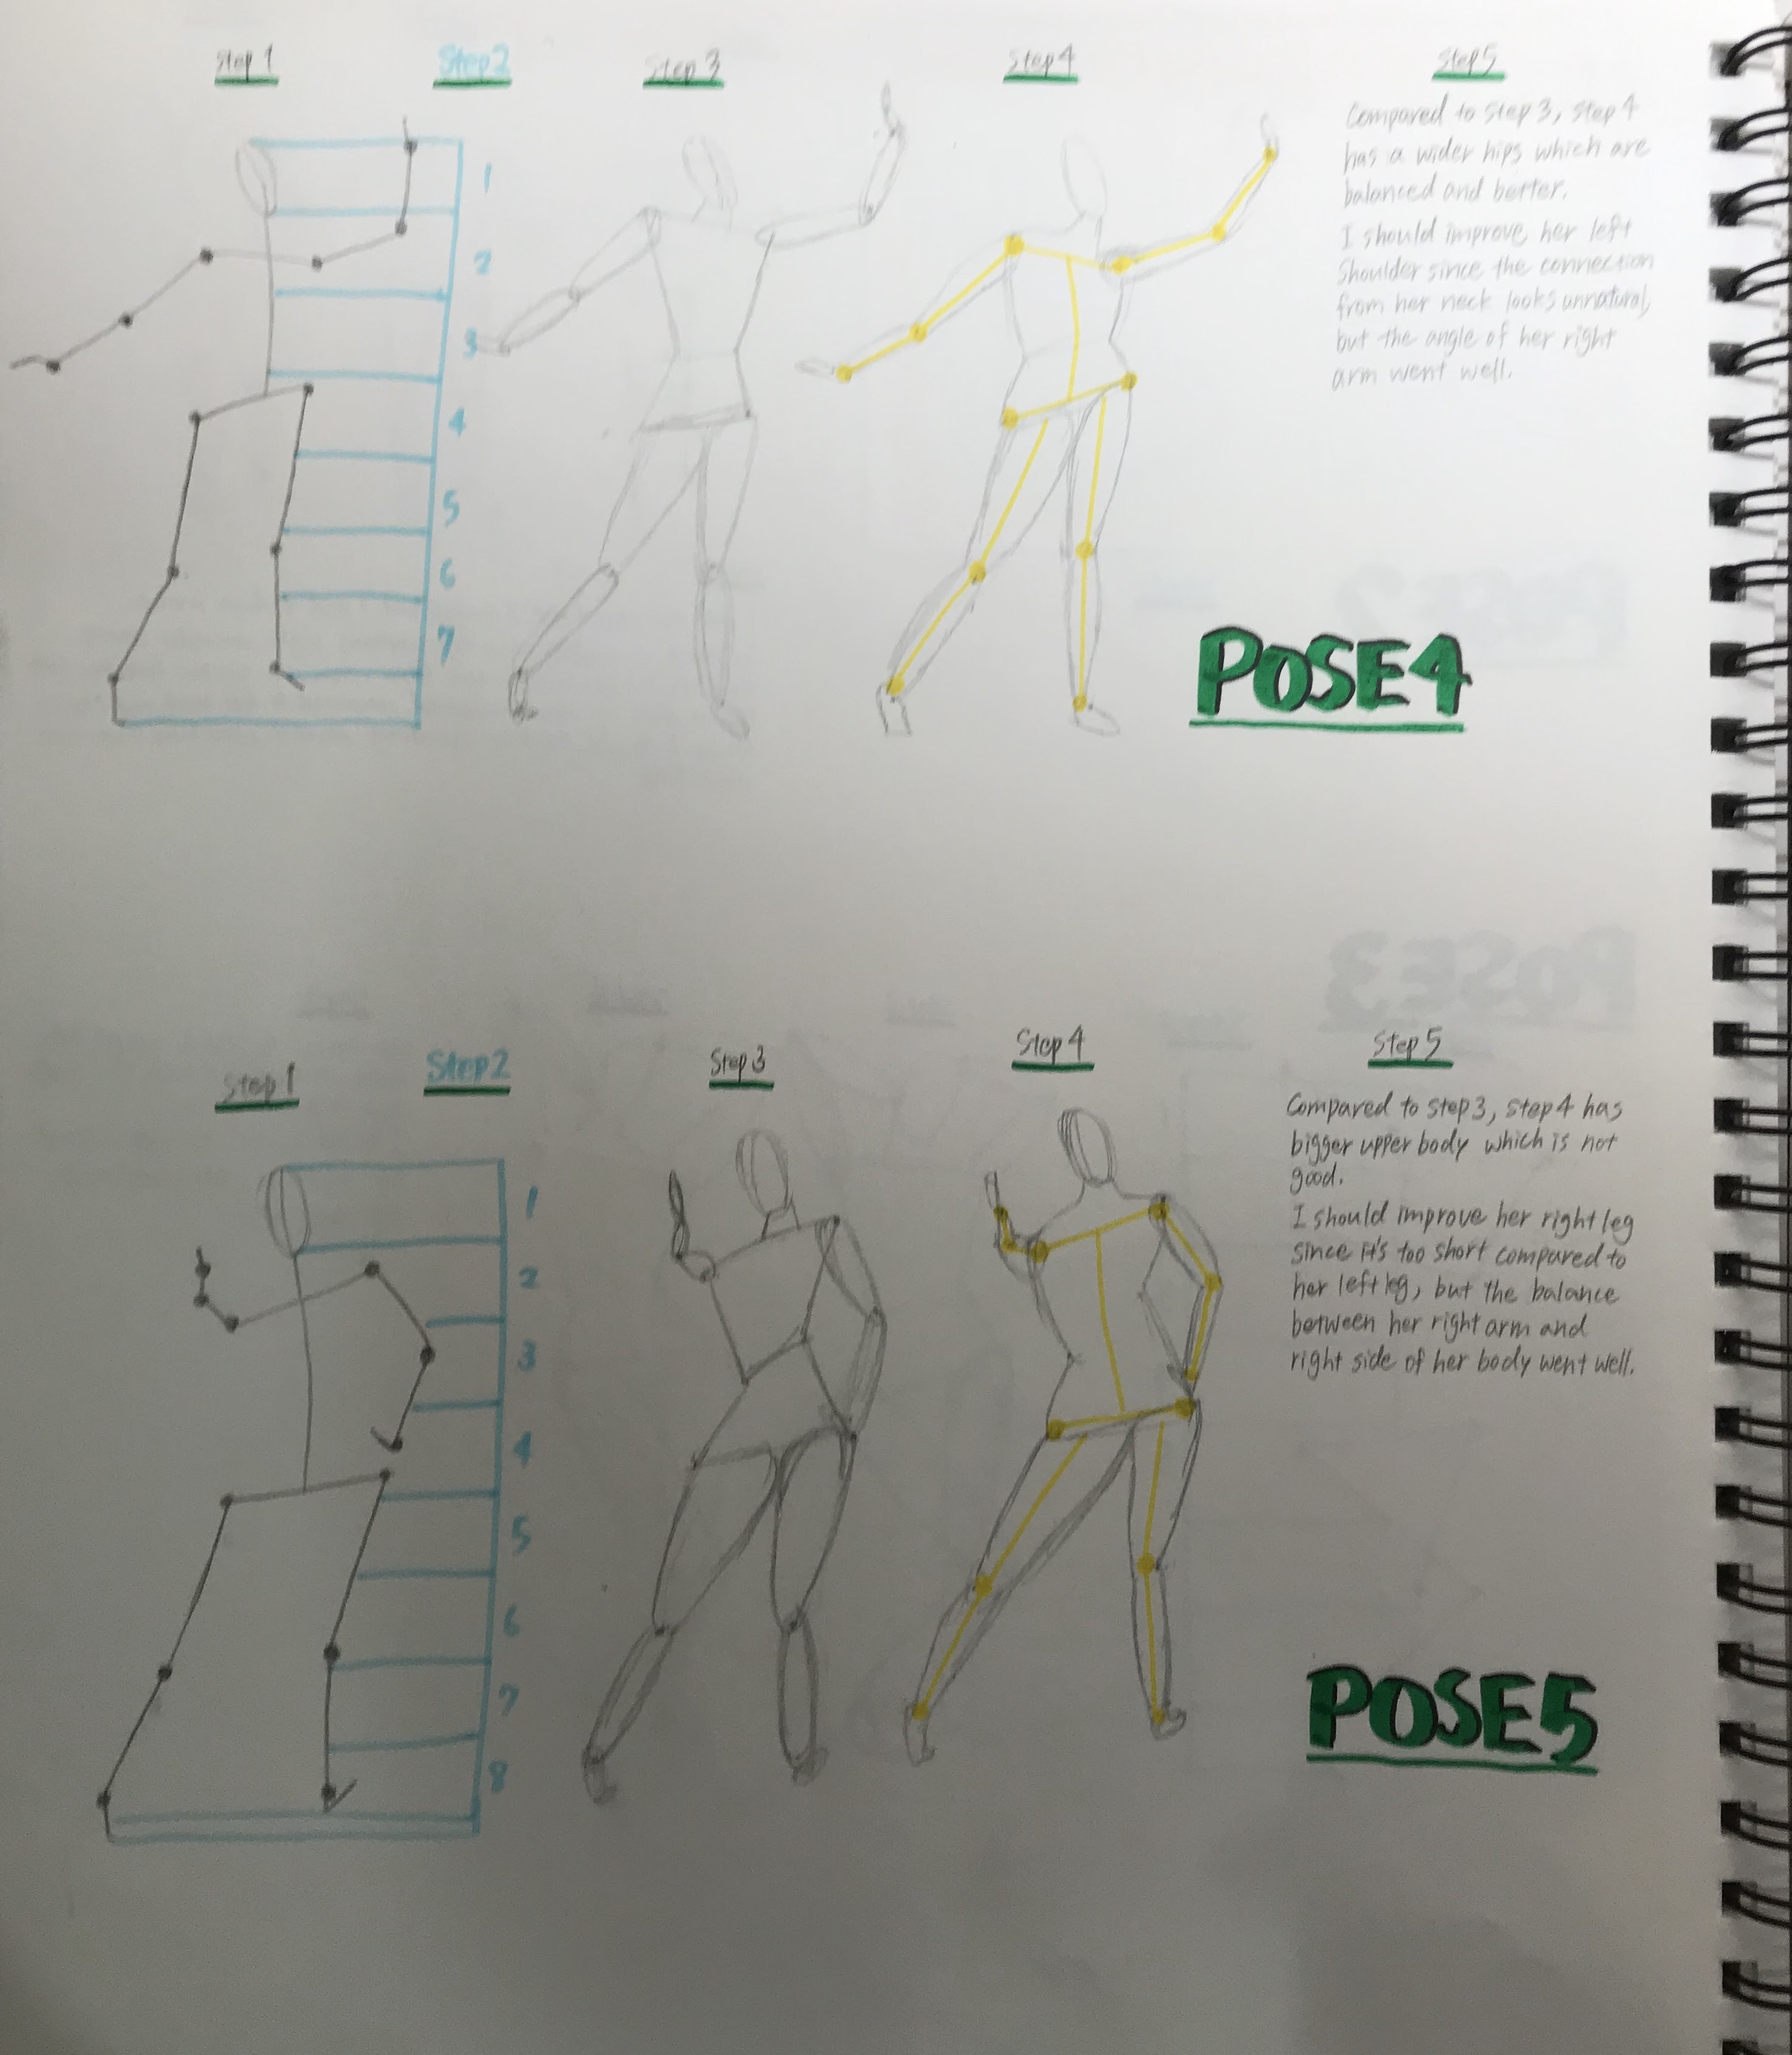 Step 1
Step 2
Step 3
Step 4
Step 5
Compared to step 3, step 4
has a wider hips which are
balanced and better.
I should improve her left
shoulder since the connection
from her neck looks unnatural,
but the angle of her right
arm went well.
1
2
3
4
5
6
7
POSE4
Step 1
Step 2
Step 3
Step 4
Step 5
Compared to step 3, step 4 has
bigger upper body which is not
good.
I should improve her right leg
since it's too short compared to
her left leg, but the balance
between her right arm and
right side of her body went well.
1
2
3
4
5
6
7
8
POSE5
POSE2
POSE3